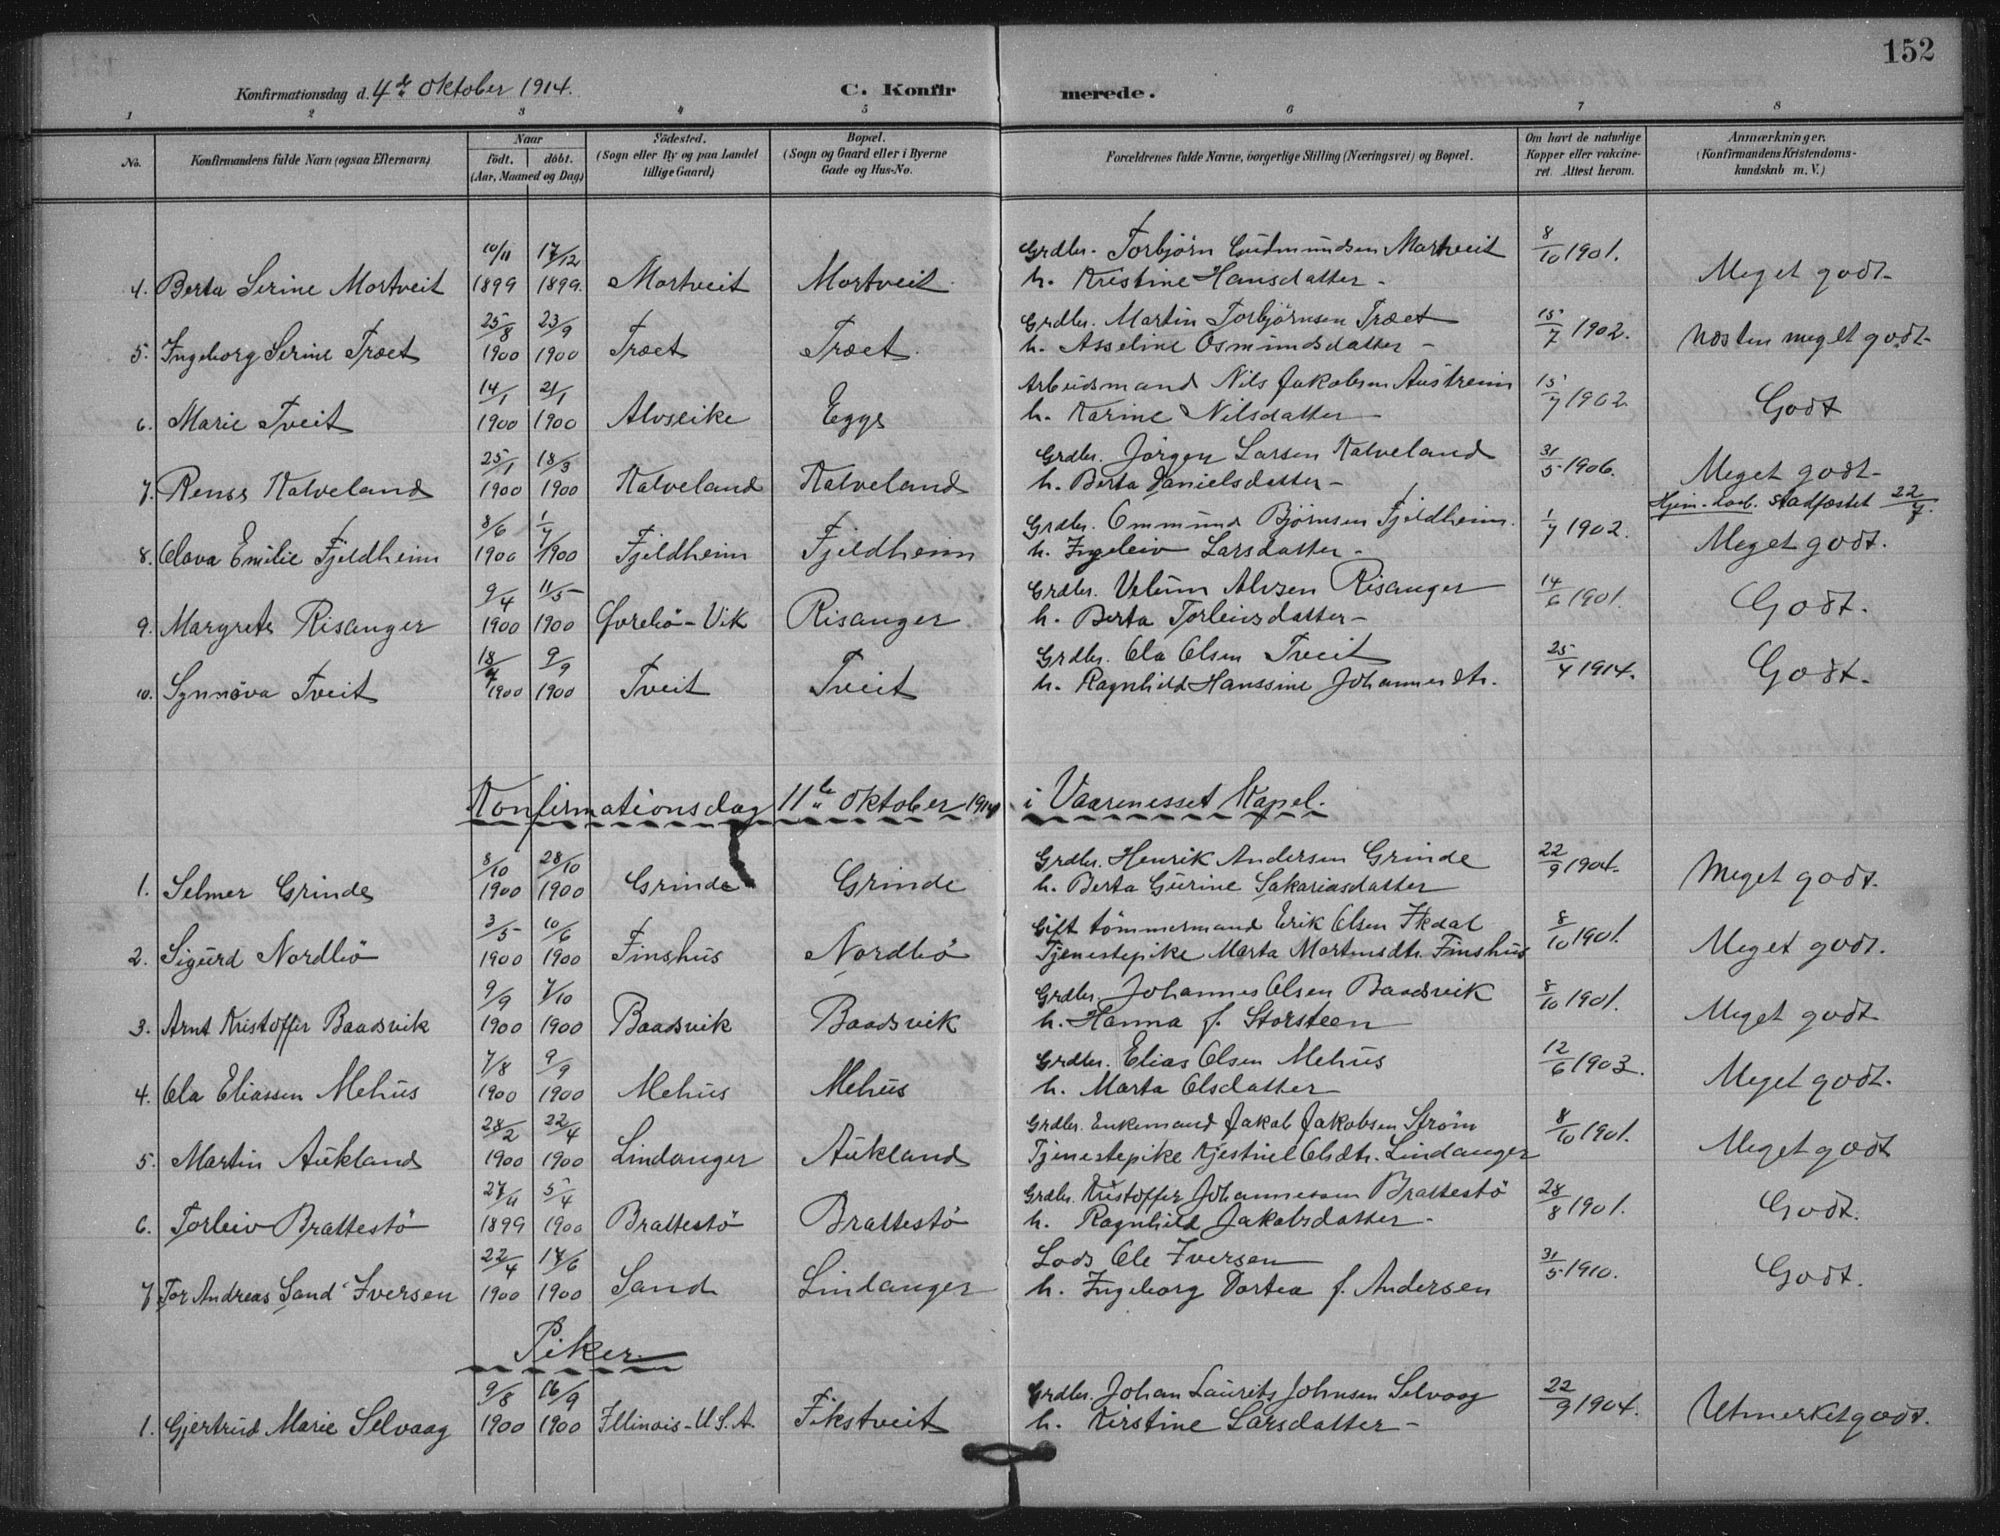 152
Konfirmationsdag d. 4de Oktober 1914. C. Konfirmerede.
1 2 3 4 5 6 7 8
No. Konfirmandens fulde Navn (ogsaa Efternavn) Naar født. døbt. (Aar, Maaned og Dag) Fødested. (Sogn eller By og paa Landet tillige Gaard) Bopæl. (Sogn og Gaard eller i Byerne Gade og Hus-No. Forældrenes fulde Navne, borgerlige Stilling (Næringsvei) og Bopæl. Om havt de naturlige Kopper eller vakcineret. Attest herom. Anmærkninger. (Konfirmandens Kristendomskundskab m. V.)
10/11 17/12 Grdbr. Torbjörn Gudmundsen Mortveit 8/10 1901.
4. Berta Serine Mortveit 1899 1899. Mortveit Mortveit h. Kristine Hansdatter - Meget godt
25/8 23/9 Grdbr. Martin Torbjörnsen Træet 15/7 1902.
5. Ingeborg Serine Træet 1900 1900 Træet Træet h. Asseline Osmundsdatter - Næsten meget godt
14/1 21/1 Arbeidsmand Nils Jakobsen Austreim 15/7 1902
6. Marie Tveit 1900 1900 Alvseike Egge h. Karine Nilsdatter Godt
25/1 18/3 Grdbr. Jörgen Larsen Kalveland 31/5 1906.
7. Kalveland 1900 1900 Kalveland Kalveland h. Berta Danielsdatter - Meget godt
8/6 1/7 Grdbr. Ommund Björnsen Fjeldheim. 1/7 1902. Hjem. stadfæstet 22/7.
8. Olava Emilie Fjeldheim 1900 1900 Fjeldheim Fjeldheim h. Ingeleiv Larsdatter - Meget godt.
9/4 11/5 Grdbr. Alvsen Risanger 14/6 1901.
9. Margrete Risanger 1900 1900 Övrebö - Vik Risanger h. Berta Torleivsdatter - Godt.
18/7 9/9 Grdbr. Ola Olsen Tveit 25/4 1914.
10. Synnöva Tveit 1900 1900 Tveit Tveit h. Ragnhild Hanssine Johannesdtr. Godt.
Konfirmationsdag 11te Oktober 1914 i Vaarenesset Kapel.
8/10 28/10 Grdbr. Henrik Andersen Grinde 22/9 1904.
1. Selmer Grinde 1900 1900 Grinde Grinde h. Berta Gurine Sakariasdatter Meget godt.
3/5 10/6 Gift tömmermand Erik Olsen 8/10 1901.
2. Sigurd Nordbö 1900 1900 Finshus Nordbö Tjenestepike Marta Martinsdtr. Finshus Meget godt.
9/9 7/10 Grdbr. Johannes Olsen Baadsvik 8/10 1901.
3. Arnt Kristoffer Baadsvik 1900 1900 Baadsvik Baadsvik h. Hanna f. Storsteen Meget godt
7/8 9/9 Grdbr. Elias Olsen Mehus 12/6 1903.
4. Ola Eliassen Mehus 1900 1900 Mehus Mehus h. Marta Olsdatter Meget godt.
28/2 22/4 Grdbr. Enkemand Jakob Jakobsen Ström 8/10 1901.
5. Martin Aukland 1900 1900 Lindanger Aukland Tjenestepike Kjestine Olsdtr. Lindanger Meget godt
27/11 5/4 Grdbr. Kristoffer Johannessen Brattestö 28/8 1901.
6. Torleiv Brattestö 1899 1900 Brattestö Brattestö h. Ragnhild Jakobsdatter - Godt.
22/4 17/6 Lods Ole Iversen 31/5 1910.
7 Tor Andreas Sand Iversen 1900 1900 Sand Lindanger h. Ingeborg Dortea f. Andersen Godt.
Piker
9/8 16/9 Grdbr. Johan Laurits Johnsen Selvaag 22/9 1904.
1. Gjertrud Marie Selvaag 1900 1900 Illinois - U.S.A. Fikstveit h. Kirstine Larsdatter - Utmerket godt.